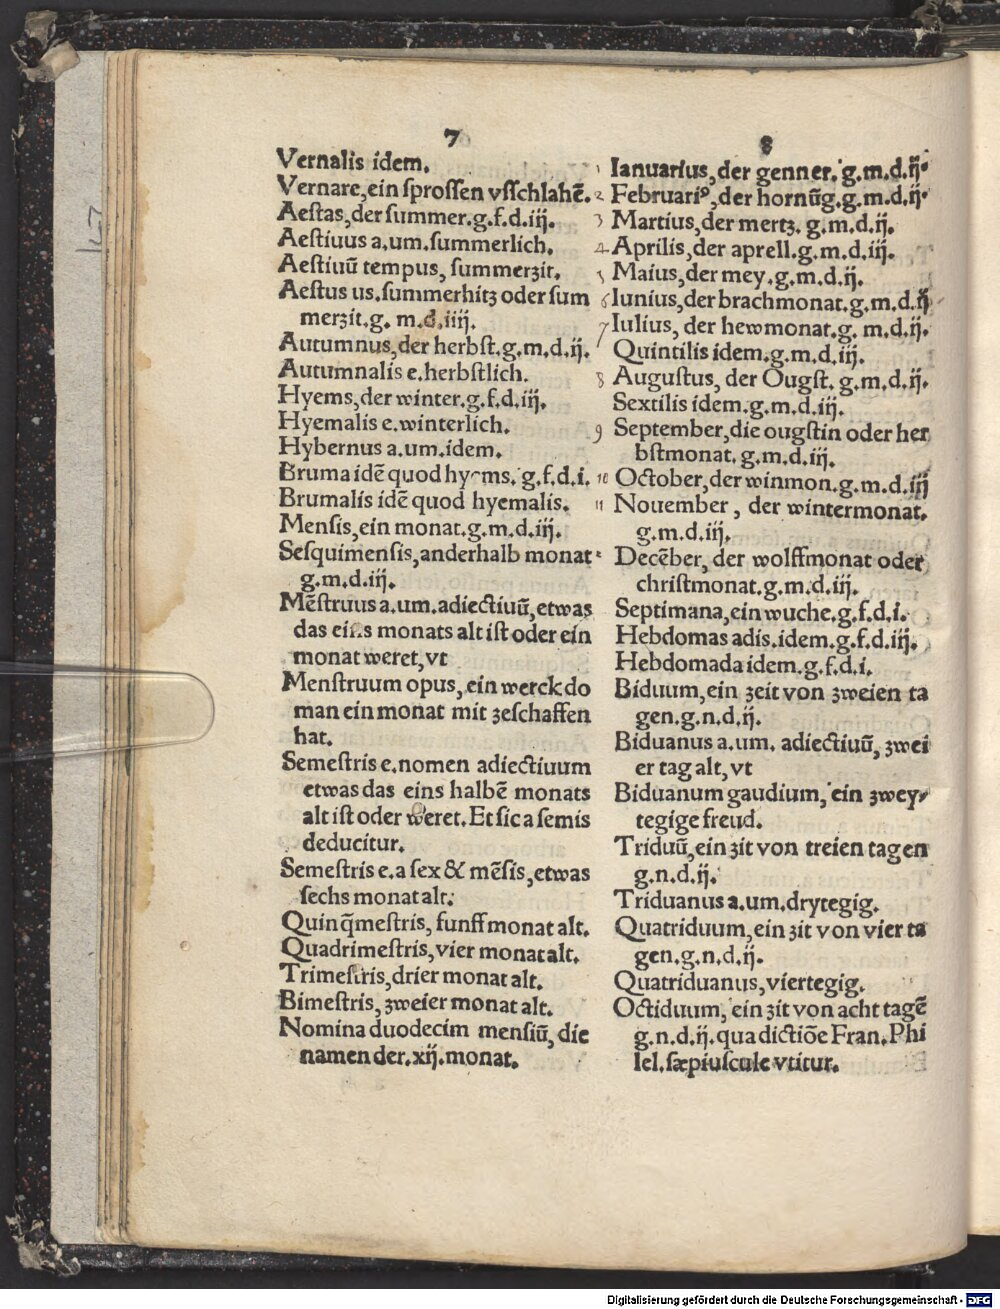 7
Vernalis idem.
Vernare,ein sprossen vſſchlahē.
Aestas,der summer.g.f.d.iij.
Aestiuus a.um.summerlich.
Aestiuū tempus, summerzit.
Aestus us.summerhitz oder sum
merzit.g. m.d.iiij.
Autumnus,der herbst.g.m.d.ij.
Autumnalis e.herbstlich.
Hyems,der winter.g.f.d.iij.
Hyemalis e.winterlich.
Hybernus a.um.idem.
Bruma idē quod hyems. g.f.d.i.
Brumalis idē quod hyemalis.
Mensis,ein monat.g.m.d.iij.
Sesquimensis,anderhalb monat
g.m.d.iij.
Mēstruus a.um.adiectiuū,etwas
das eins monats alt ist oder ein
monat weret,vt
Menstruum opus, ein werck do
man ein monat mit zeschaffen
hat.
Semestris e.nomen adiectiuum
etwas das eins halbē monats
alt ist oder weret.Et sic a semis
deducitur.
Semestris e.a sex & mēsis,etwas
sechs monat alt.
Quinq̄mestris, funff monat alt.
Quadrimestris,vier monat alt.
Trimestris,drier monat alt.
Bimestris, zweier monat alt.
Nomina duodecim mensiū, die
namen der.xij.monat.
8
1 Ianuarius,der genner. g.m.d.ij.
2 Februariꝰ,der hornūg.g.m.d.ij.
3 Martius,der mertz. g.m.d.ij.
4 Aprilis,der aprell.g.m.d.iij.
5 Maius,der mey.g.m.d.ij.
6 Iunius,der brachmonat.g.m.d.ij
7 Iulius, der hewmonat.g. m.d.ij.
Quintilis idem.g.m.d.iij.
8 Augustus, der Ougst. g.m.d.ij.
Sextilis idem.g.m.d.iij.
9 September,die ougstin oder her
bstmonat. g.m.d.iij.
10 October,der winmon.g.m.d.iij
11 Nouember, der wintermonat.
g.m.d.iij.
Decēber, der wolffmonat oder
christmonat.g.m.d.iij.
Septimana,ein wuche.g.f.d.i.
Hebdomas adis.idem.g.f.d.iij.
Hebdomada idem.g.f.d.i.
Biduum,ein zeit von zweien ta
gen.g.n.d.ij.
Biduanus a.um. adiectiuū, zwei
er tag alt,vt
Biduanum gaudium, ein zwey
tegige freud.
Triduū,ein zit von treien tagen
g.n.d.ij.
Triduanus a.um.drytegig.
Quatriduum,ein zit von vier ta
gen.g.n.d.ij.
Quatriduanus,viertegig.
Octiduum, ein zit von acht tagē
g.n.d.ij.qua dictiōe Fran.Phi
lel.sæpiuscule vtitur.
Digitalisierung gefördert durch die Deutsche Forschungsgemeinschaft - DFG